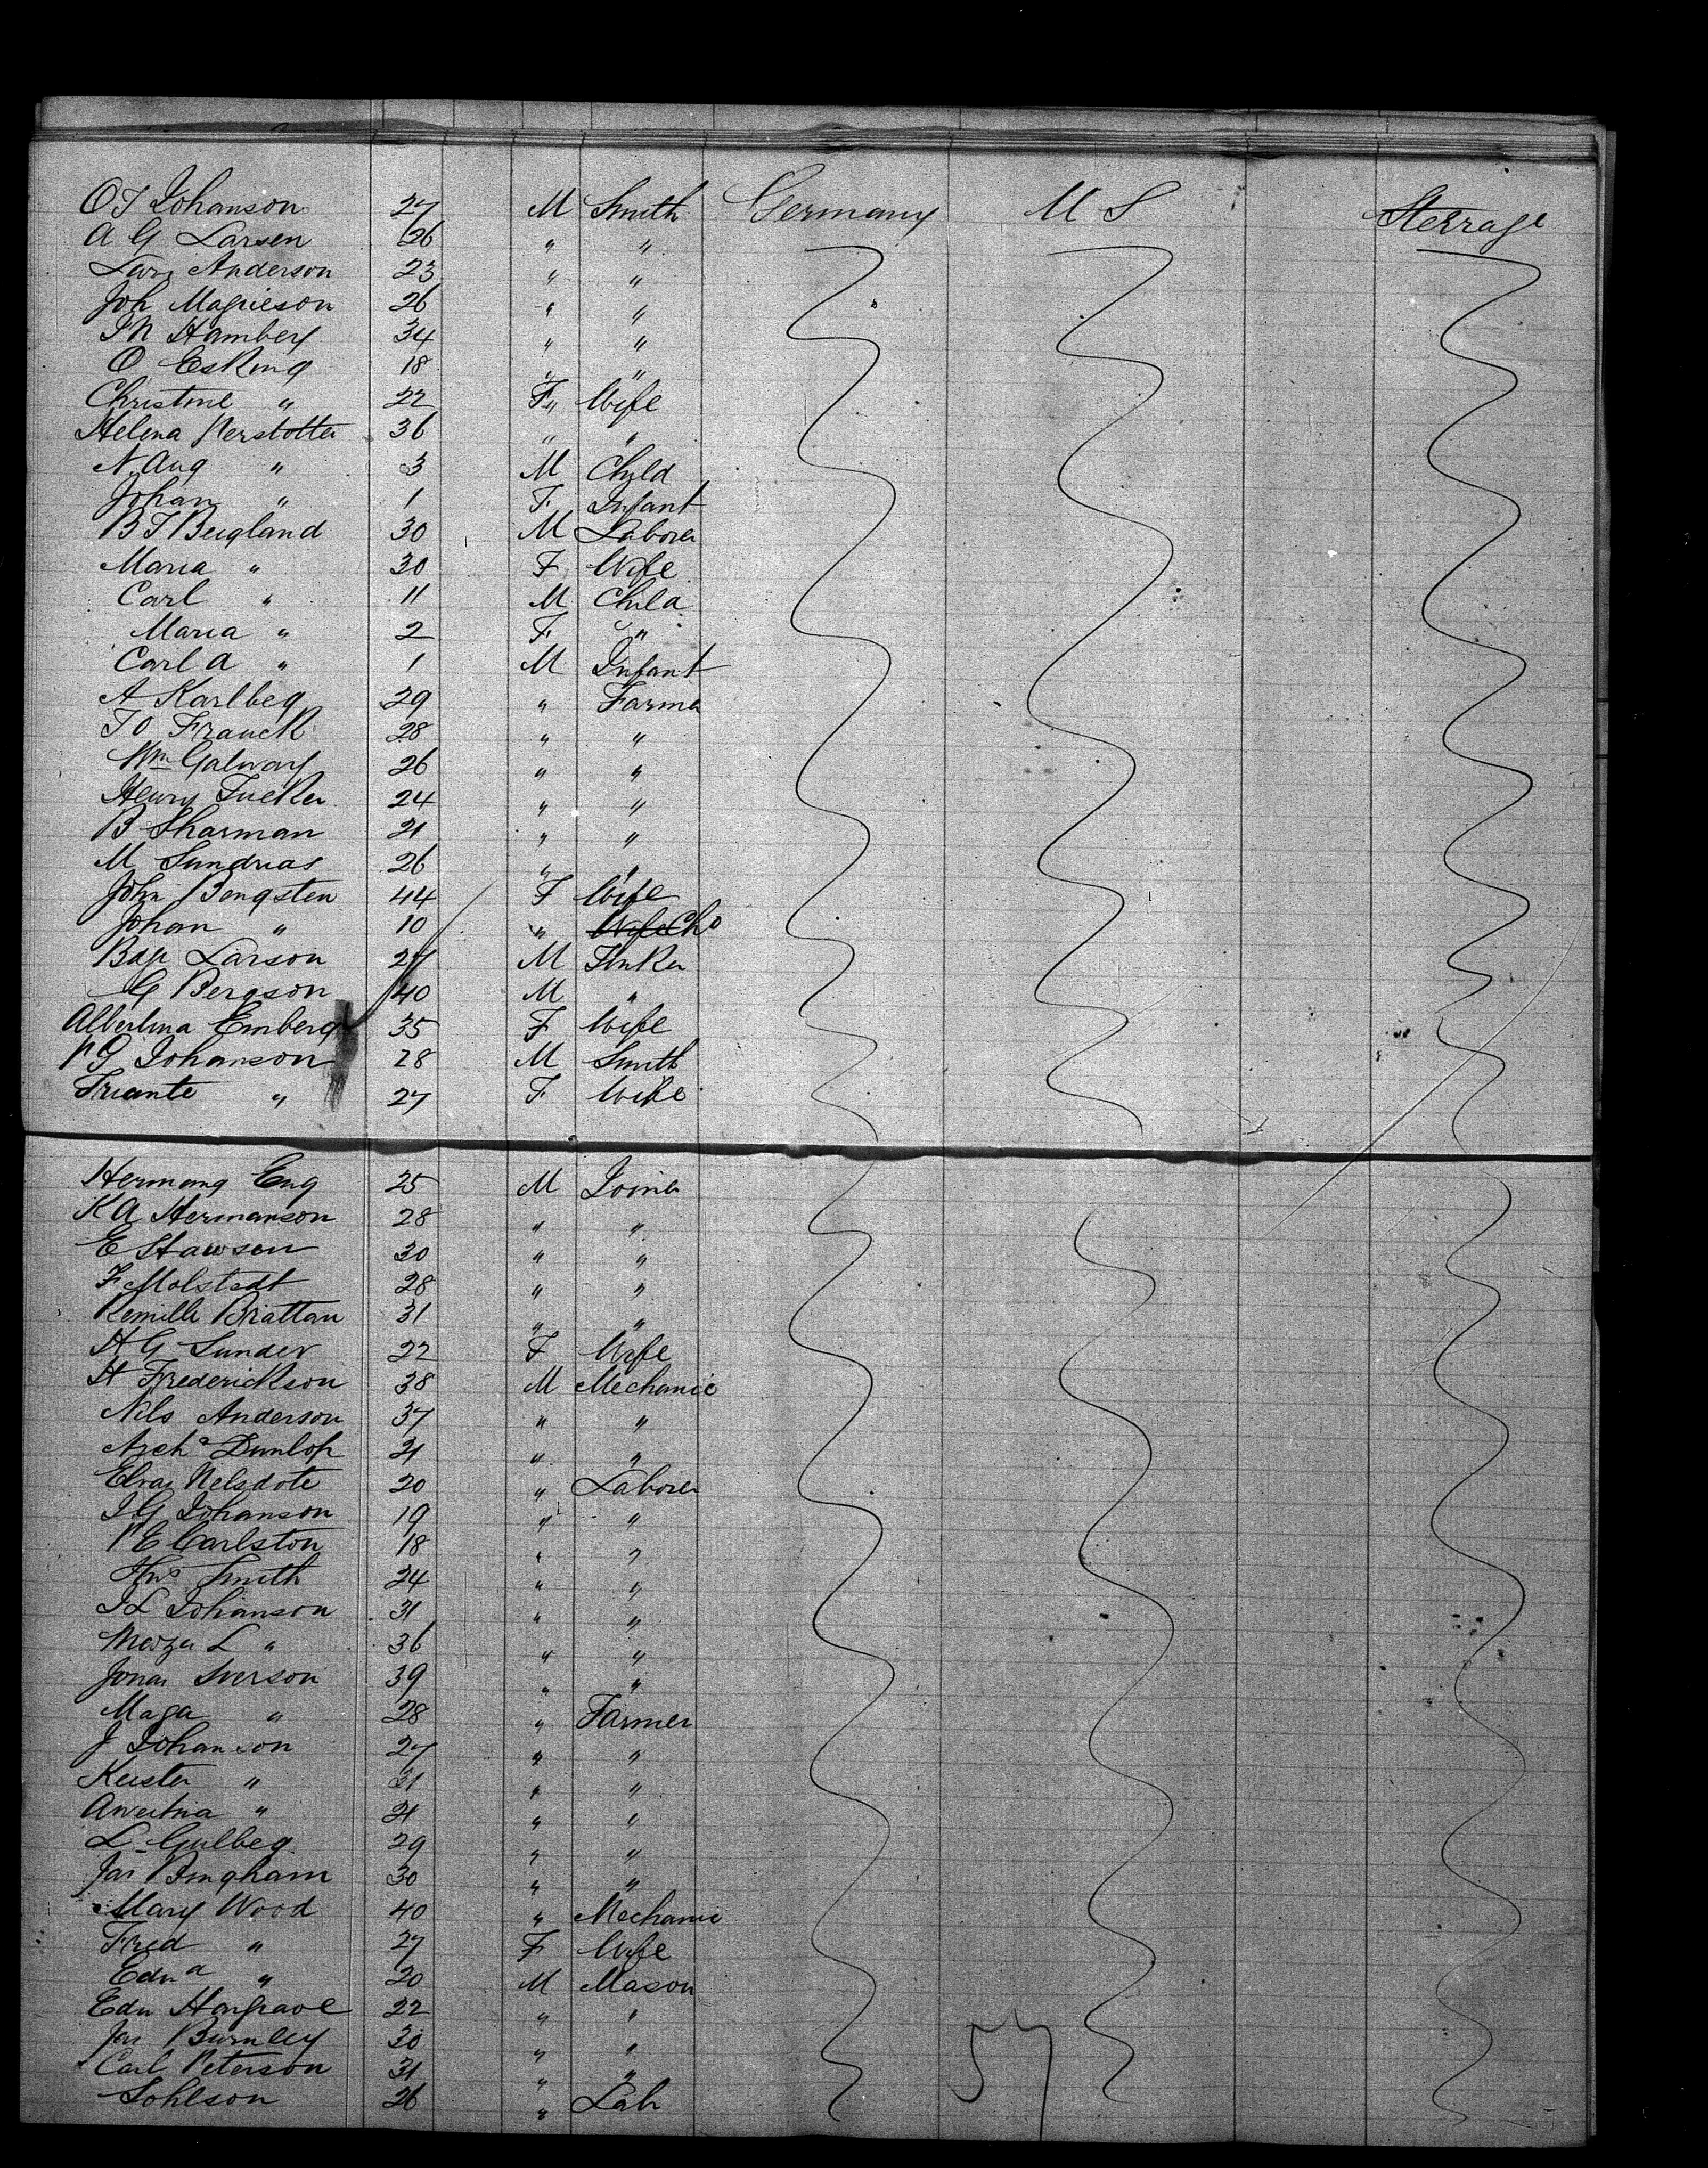 O J Johanson 27 M Smith Germany U S Sterrage
A G Larsen 26 " "
Lars Anderson 23 " "
Joh Magneson 26 " "
J N Hamberg 34 " "
O Esking 18 " "
Christine " 22 F " Wife
Helena Perstotter 36 " "
N. Aug " 3 M Child
Johan " 1 F Infant
B J Bergland 30 M Laborer
Maria " 30 F Wife
Carl " 11 M Child
Maria " 2 F "
Carl A " 1 M Infant
A Karlberg 29 " Farmer
J O Franck 28 " "
Wm Galway 26 " "
Henry Tucker 24 " "
B Sharman 21 " "
M Sundras 26 " "
John Bengsten 44 F Wife
Johan " 10 " Wife Chd
Larson 27 M Tinker
G Bergson 40 M "
Albertina Emberg 35 F Wife
P G Johanson 28 M Smith
" 27 F Wife
Hermang Eng 25 M Joiner
K A Hermanson 28 " "
E Stawson 30 " "
F Molstedt 28 " "
Brattan 31 " "
A G Sunder 22 F Wife
H Frederickson 38 M Mechanic
Nils Anderson 37 " "
Archd Dunlop 21 " "
Nelsdote 20 " Laborer
J G Johanson 19 " "
P E Carlston 18 " "
Smith 24 " "
J L Johanson 31 " "
L " 36 " "
Jonas Sverson 39 " "
Maga " 28 " Farmer
J Johanson 27 " "
" 31 " "
" 21 " "
L Gulbeg 29 " "
Jas Bingham 30 " "
Mary Wood 40 " Mechanic
Fred " 27 F Wife
" 20 M Mason
Edw Hargrave 22 " "
Jas Burnley 30 " "
Carl Peterson 31 " "
Sohlson 26 " Lab
57